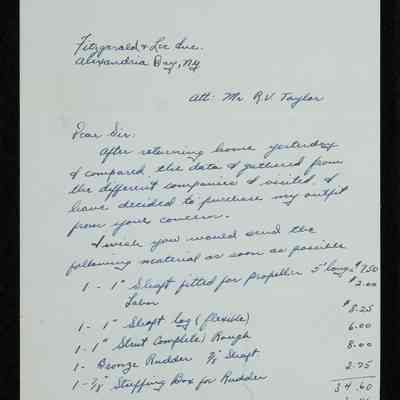 Fitzgerald & Lee Inc.
Alexandria Bay, NY
Att: Mr R.V. Taylor
Dear Sir:
After returning home yesterday
& compared the data I gathered from
the different companies I visited, I
have decided to purchase my outfit
from your concern.
I wish you would send the
following material as soon as possible
1 - 1" Shaft fitted for propeller 5' long $7.50
Labor $2.00
1 - 1" Shaft log (flexible) $8.25
1 - 1" Strut Complete Rough 6.00
1 - Bronze Rudder 7/8 Shaft 8.00
1 - 7/8" Stuffing Box for Rudder 2.75
34.60